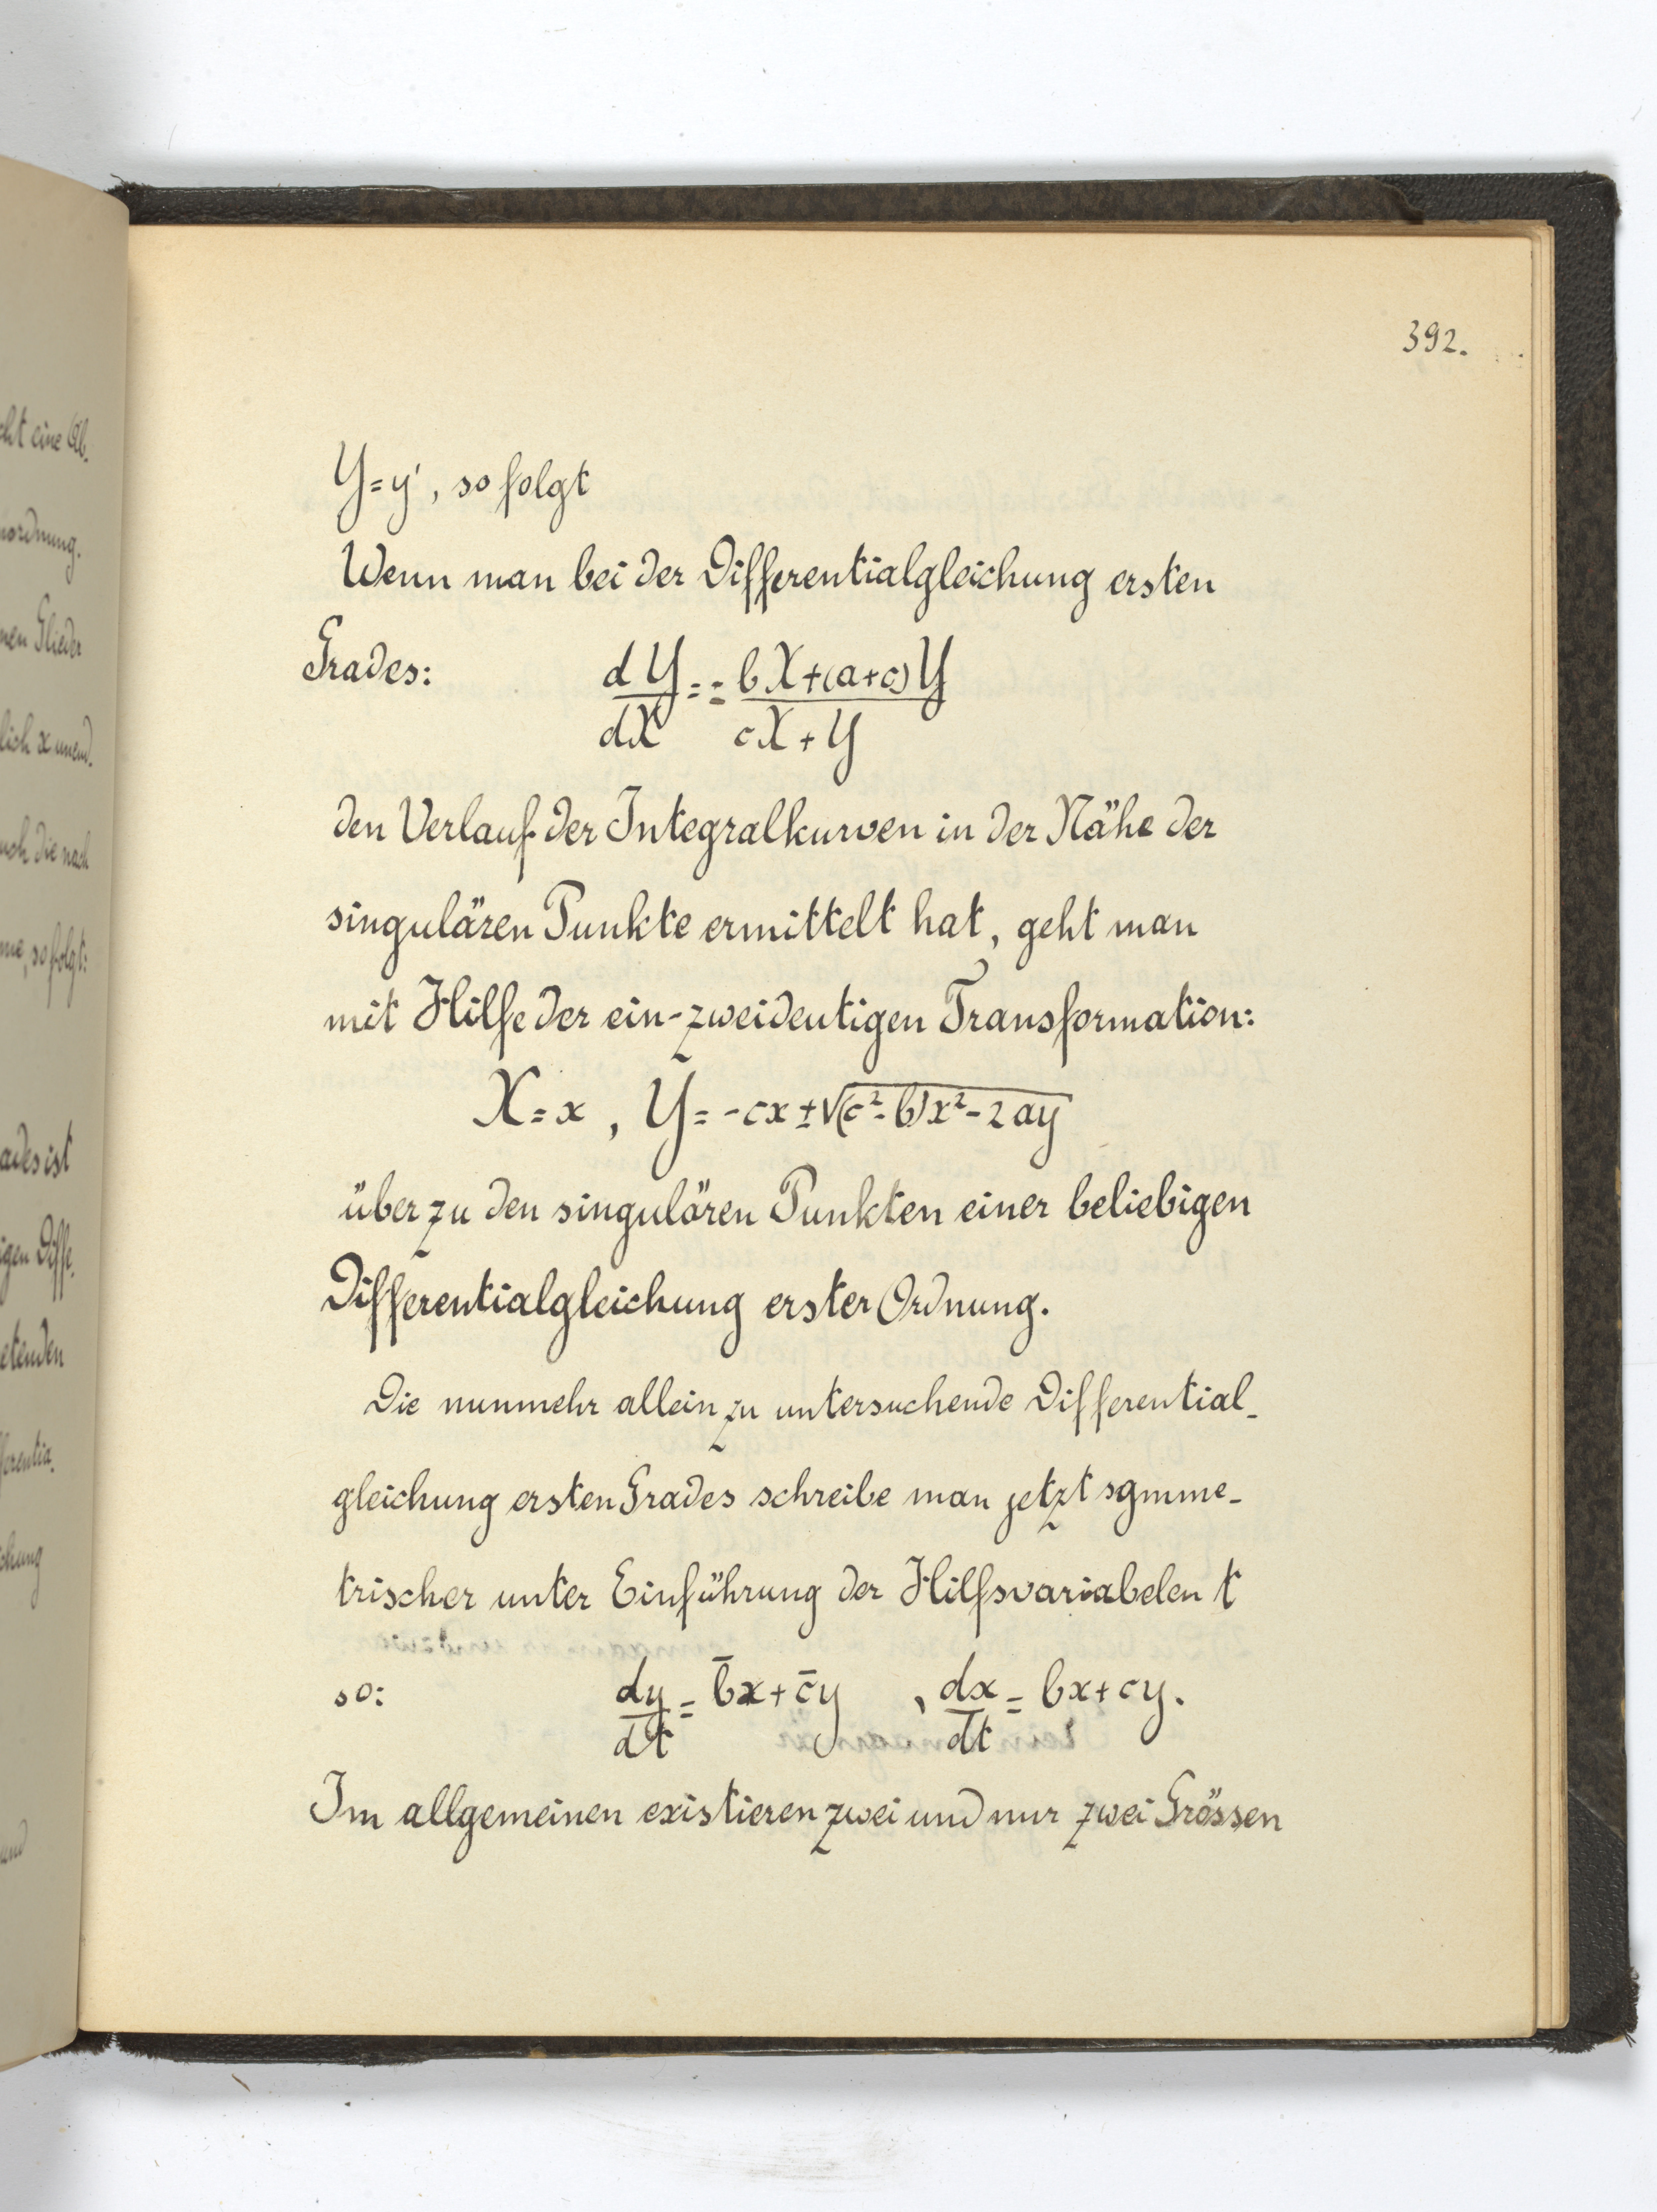 392.
Y = y', so folgt
Wenn man bei der Differentialgleichung ersten
Grades: dY/dX = - (bX + (a+c)Y)/(cX + Y)
den Verlauf der Integralkurven in der Nähe der
singulären Punkte ermittelt hat, geht man
mit Hilfe der ein-zweideutigen Transformation:
X = x, Y = -cx ± √((c²-b)x² - 2ay)
über zu den singulären Punkten einer beliebigen
Differentialgleichung erster Ordnung.
Die nunmehr allein zu untersuchende Differential-
gleichung ersten Grades schreibe man jetzt symme-
trischer unter Einführung der Hilfsvariabelen t
so: dy/dt = b̄x + c̄y , dx/dt = bx + cy.
Im allgemeinen existieren zwei und nur zwei Grössen